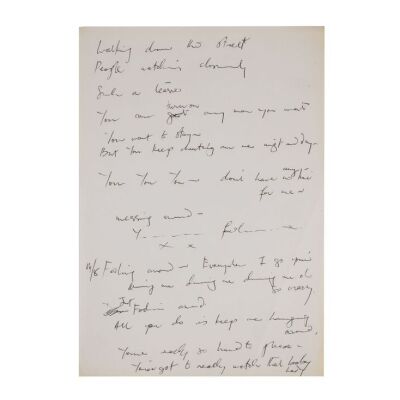 Walking down the street
People watching closely
Such a tease
You can turn on any man you want
You want to stay
But You keep cheating on me night and day
You You You don't have any time
for me
messing around
Y
x x
Fooling around Everywhere I go you're
driving me driving me driving me oh
so crazy
Just Foolin around
All you do is keep me hanging
around,
Youre really so hard to please
You've got to really watch that
Lady